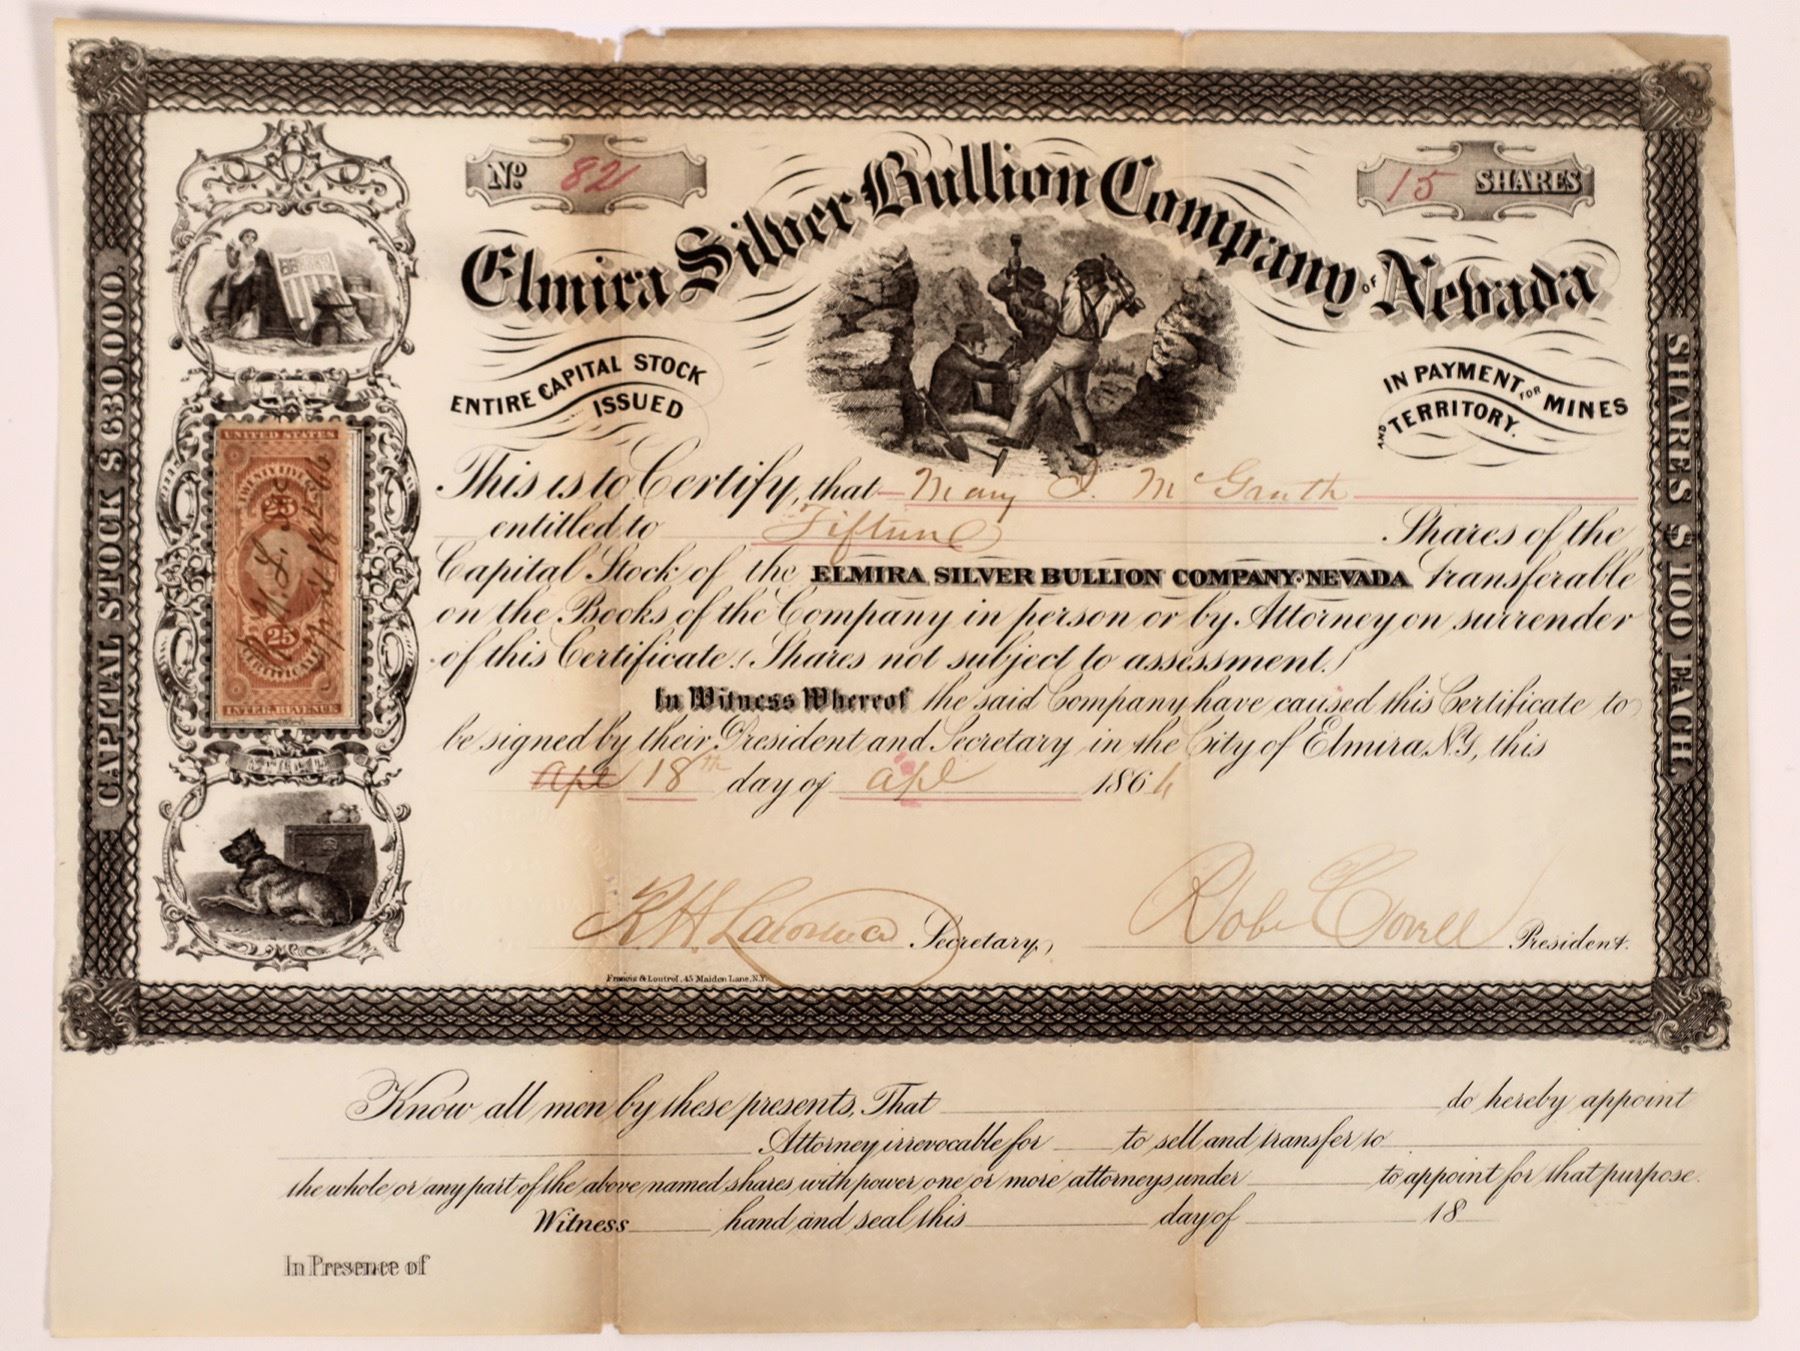 No. 82 15 SHARES
Elmira Silver Bullion Company OF Nevada
ENTIRE CAPITAL STOCK ISSUED
IN PAYMENT FOR MINES AND TERRITORY.
CAPITAL STOCK $ 630,000.
SHARES $ 100 EACH.
UNITED STATES
TWENTY FIVE
25
25
CERTIFICATE
INTER. REVENUE
This is to Certify, that Mary I. McGrath
entitled to Fifteen Shares of the
Capital Stock of the ELMIRA SILVER BULLION COMPANY·NEVADA transferable
on the Books of the Company in person or by Attorney on surrender
of this Certificate. (Shares not subject to assessment.)
In Witness Whereof the said Company have caused this Certificate to
be signed by their President and Secretary in the City of Elmira N.Y., this
Apl 18th day of Apl 1866
Secretary,
President.
Francis & Loutrel, 45 Maiden Lane, N.Y.
Know all men by these presents, That do hereby appoint
Attorney irrevocable for to sell and transfer to
the whole or any part of the above named shares with power one or more attorneys under to appoint for that purpose.
Witness hand and seal this day of 18
In Presence of